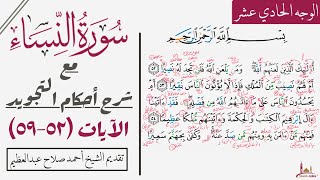 الوجه الحادي عشر
سورة النساء
مع
شرح أحكام التجويد
الآيات (٥٢-٥٩)
تقديم الشيخ أحمد صلاح عبدالعظيم
بسم الله الرحمن الرحيم
أولئك الذين لعنهم الله ومن يلعن الله فلن تجد له نصيرا
أم لهم نصيب من الملك فإذا لا يؤتون الناس نقيرا
أم يحسدون الناس على ما آتاهم الله من فضله فقد آتينا
آل إبراهيم الكتاب والحكمة وآتيناهم ملكا عظيما
فمنهم من آمن به ومنهم من صد عنه وكفى بجهنم سعيرا